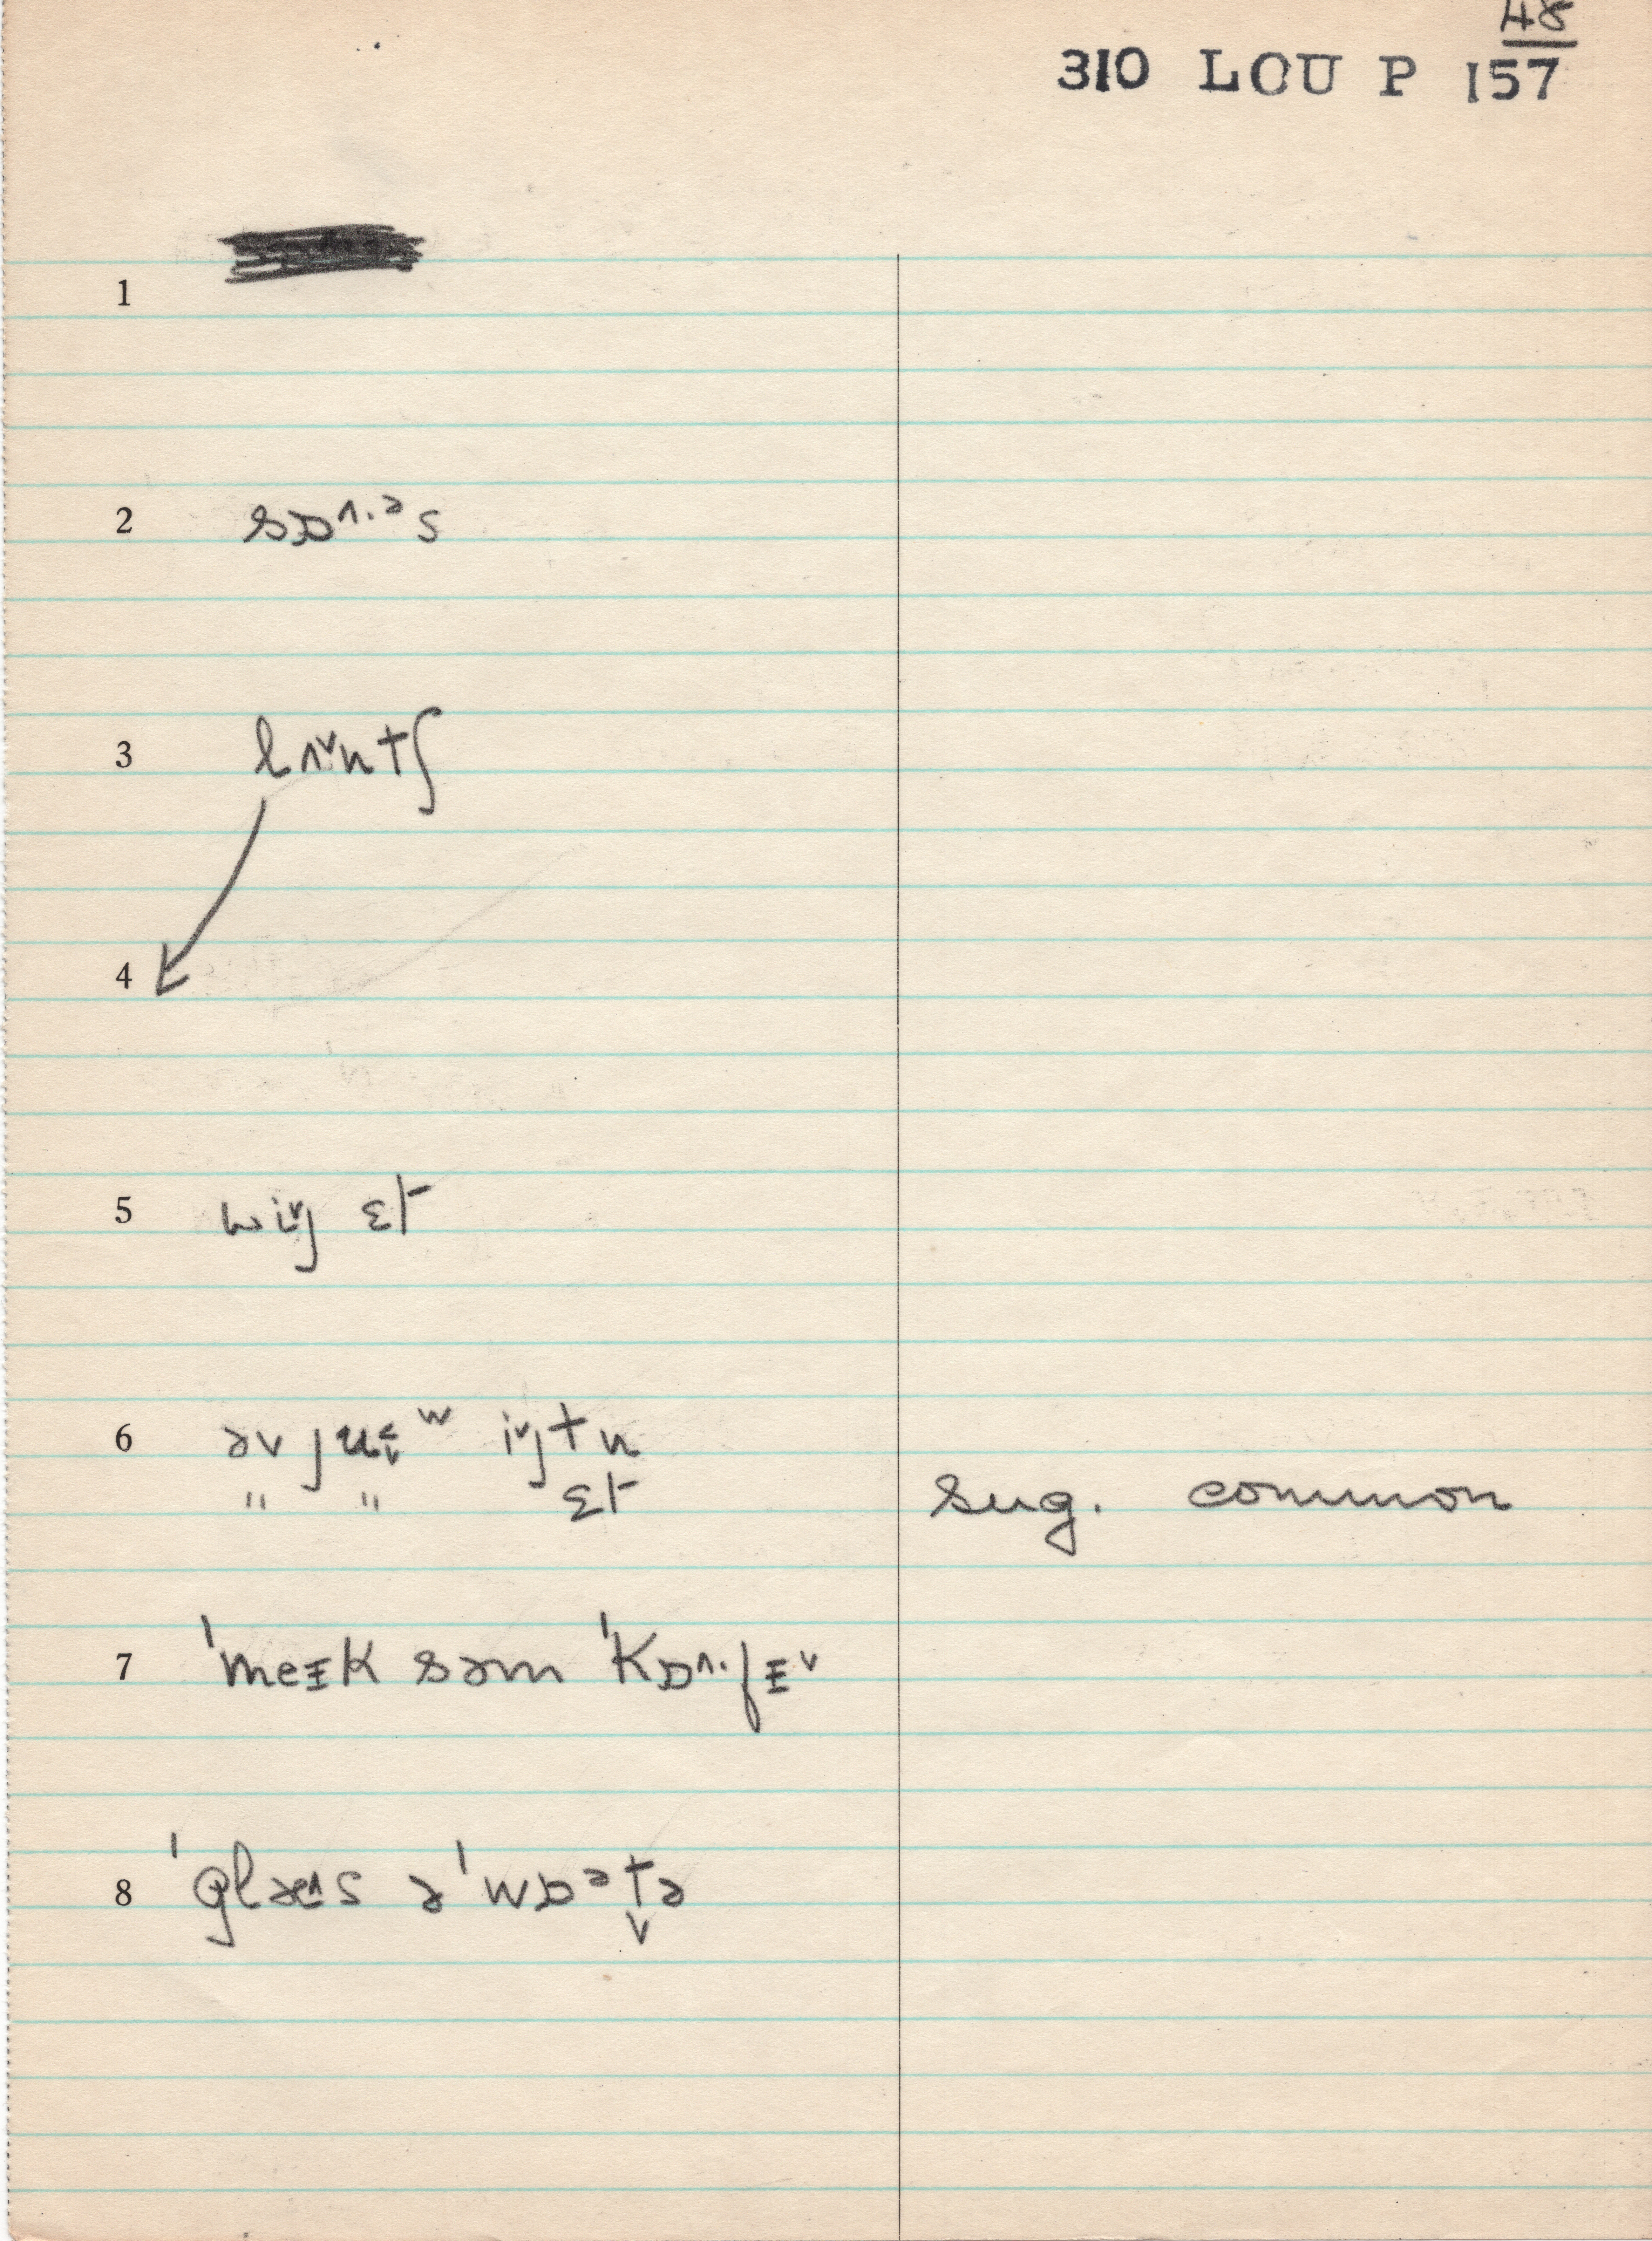 48
310 LOU P 157
1
2 sɒ^. əs
3 lʌ˅ntʃ
4
5 wi˅j ɛt
6 əv jʉ˂˅ʷ i˅jtn
" " ɛt sug. common
7 ˈmeɪk səm ˈkɒ^.fɪ˅
8 ˈglæ^s ə ˈwɒᵊt̬ə